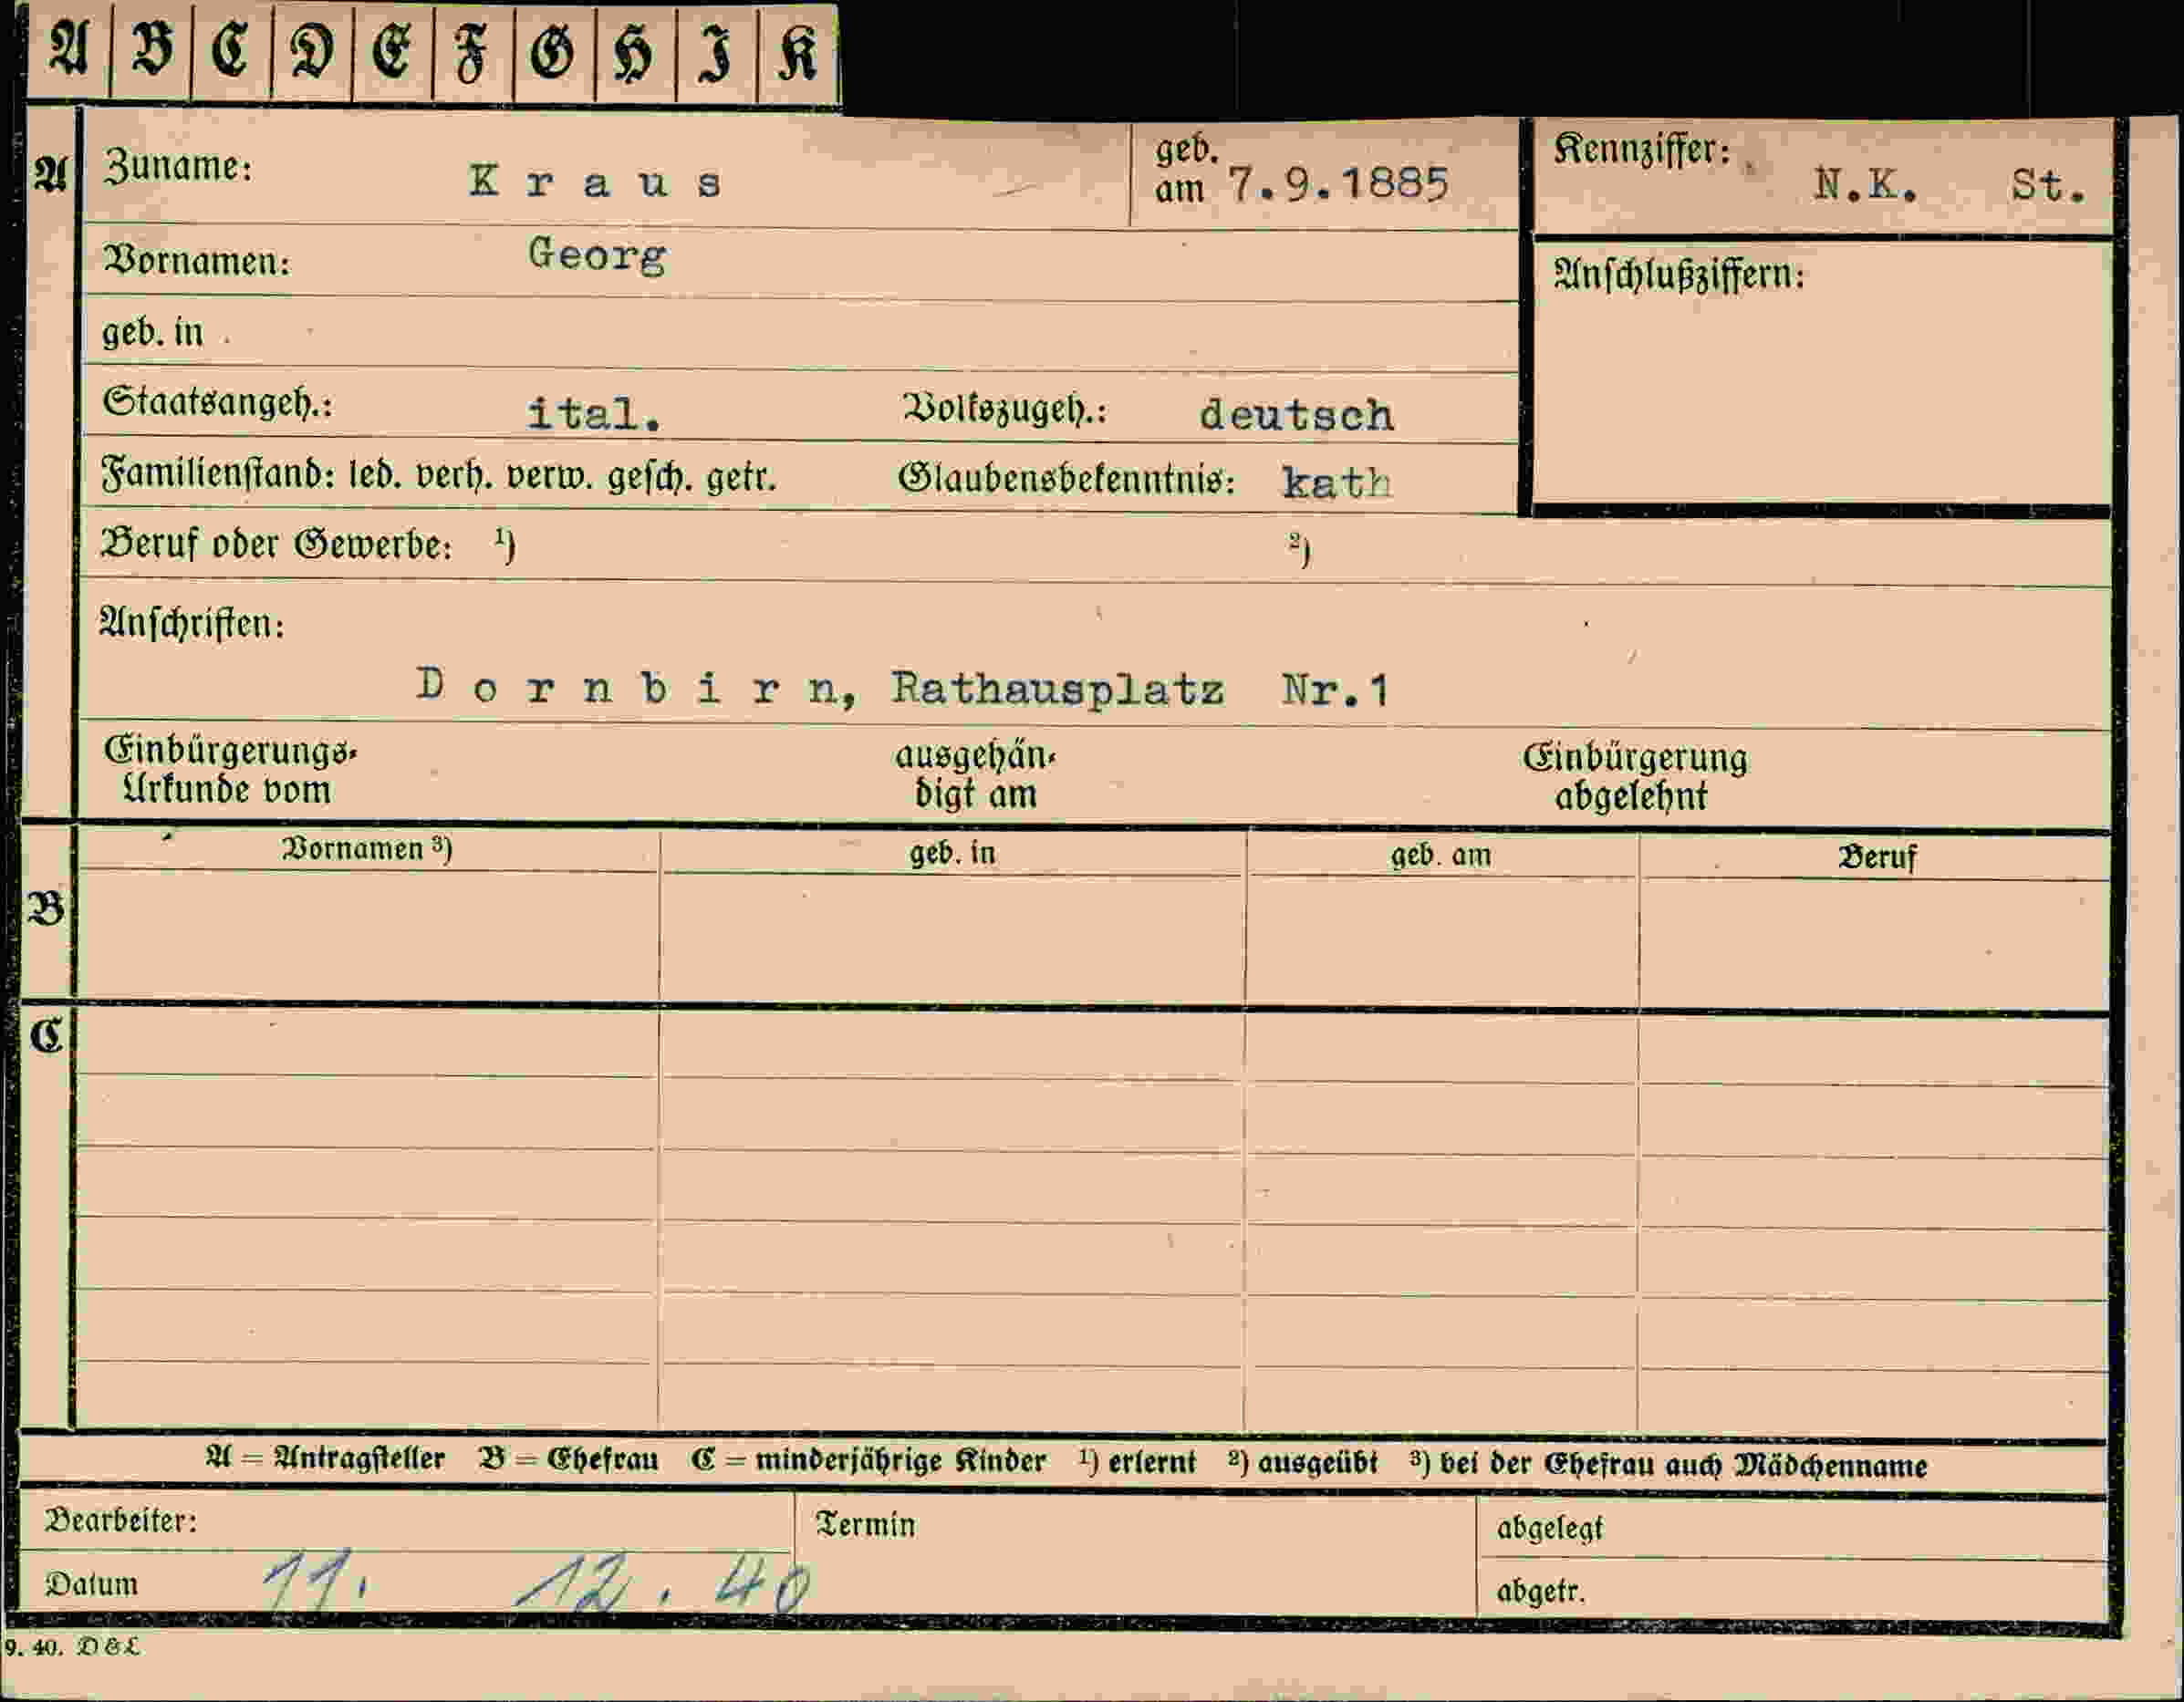 A B C D E F G H I K
A Zuname: Kraus geb. am 7.9.1885 Kennziffer: N.K. St.
Vornamen: Georg Anschlußziffern:
geb. in
Staatsangeh.: ital. Volkszugeh.: deutsch
Familienstand: led. verh. verw. gesch. getr. Glaubensbekenntnis: kath
Beruf oder Gewerbe: ¹) ²)
Anschriften:
Dornbirn, Rathausplatz Nr.1
Einbürgerungs- ausgehän- Einbürgerung
Urkunde vom digt am abgelehnt
Vornamen ³) geb. in geb. am Beruf
B
C
A = Antragsteller B = Ehefrau C = minderjährige Kinder ¹) erlernt ²) ausgeübt ³) bei der Ehefrau auch Mädchenname
Bearbeiter: Termin abgelegt
Datum 11. 12. 40 abgetr.
9. 40. D & L